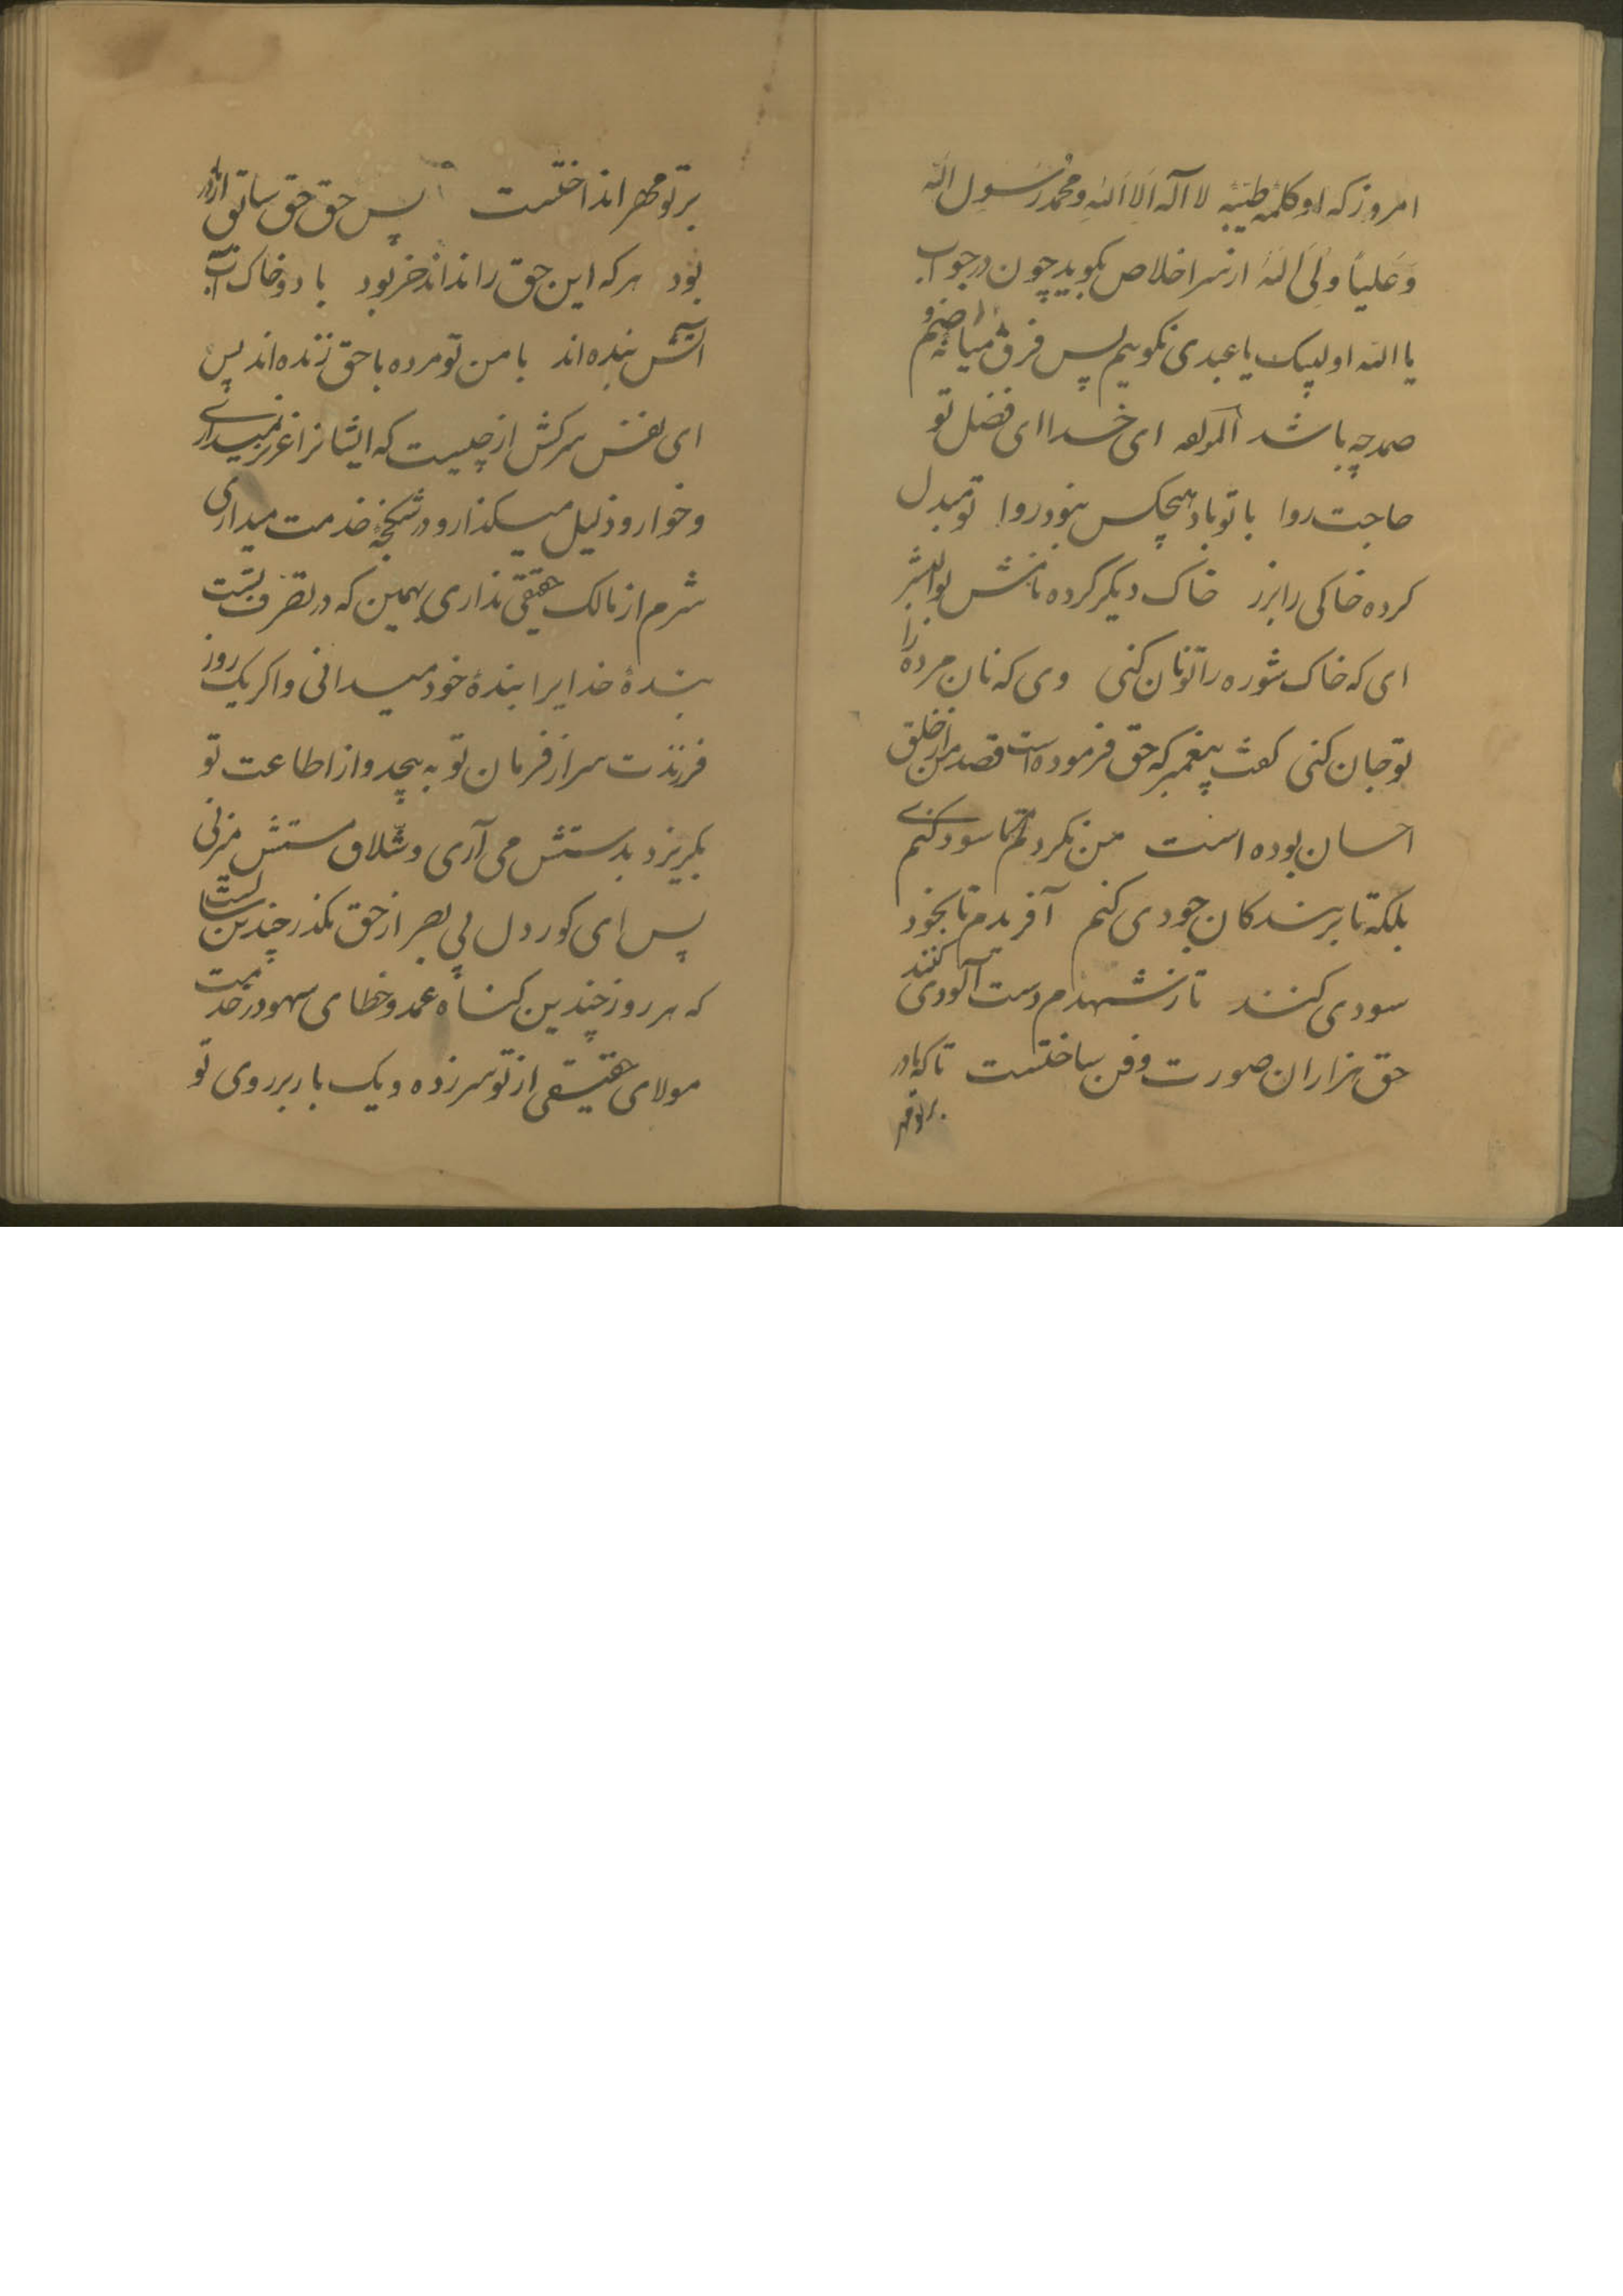 امروز که او کلمه طیبه لا اله الا الله و محمد رسول الله
و علیاً ولی الله از سر اخلاص بکوید چون در جواب
یا الله او لبیک یا عبدی نکویم پس فرق میانه صنم و
صمد چه باشد المولفه ای خدا ای فضل تو
حاجت روا با تو یاد هیچکس نبود روا تو مبدل
کرده خاکی را بزر خاک دیکر کرده نامش بوالبشر
ای که خاک شوره را تو نان کنی وی که نان مرده را
تو جان کنی کفت پیغمبر که حق فرموده است قصد من از خلق
احسان بوده است من نکردم تا سودی کنم
بلکه تا بر بندکان جودی کنم آفریدم تا بخود
سودی کنند تا ز شهدم دست آلودی کنند
حق هزاران صورت و فن ساختست تا که مادر
بر تو مهر
بر تو مهر انداختست پس حق حق سابق از مادر
بود هر که این حق را نداند خر بود باد و خاک و آب
آتش بنده اند با من تو مرده با حق زنده اند پس
ای نفس سرکش از چیست که ایشانرا عزیز نمیداری
و خوار و ذلیل میکذار و در شکنجه خدمت میداری
شرم از مالک حقیقی نداری بهمین که در تصرف تست
بندهٔ خدایرا بندهٔ خود میدانی و اکر یک روز
فرزندت سر از فرمان تو به پیچد و از اطاعت تو
بکریزد بدستش می آری و شلاق مستش میزنی
پس ای کور دل بی بصر از حق بکذر چندین
که هر روز چندین کناه عمد و خطای سهو در خدمت
مولای حقیقی از تو سر زده و یک بار بر روی تو